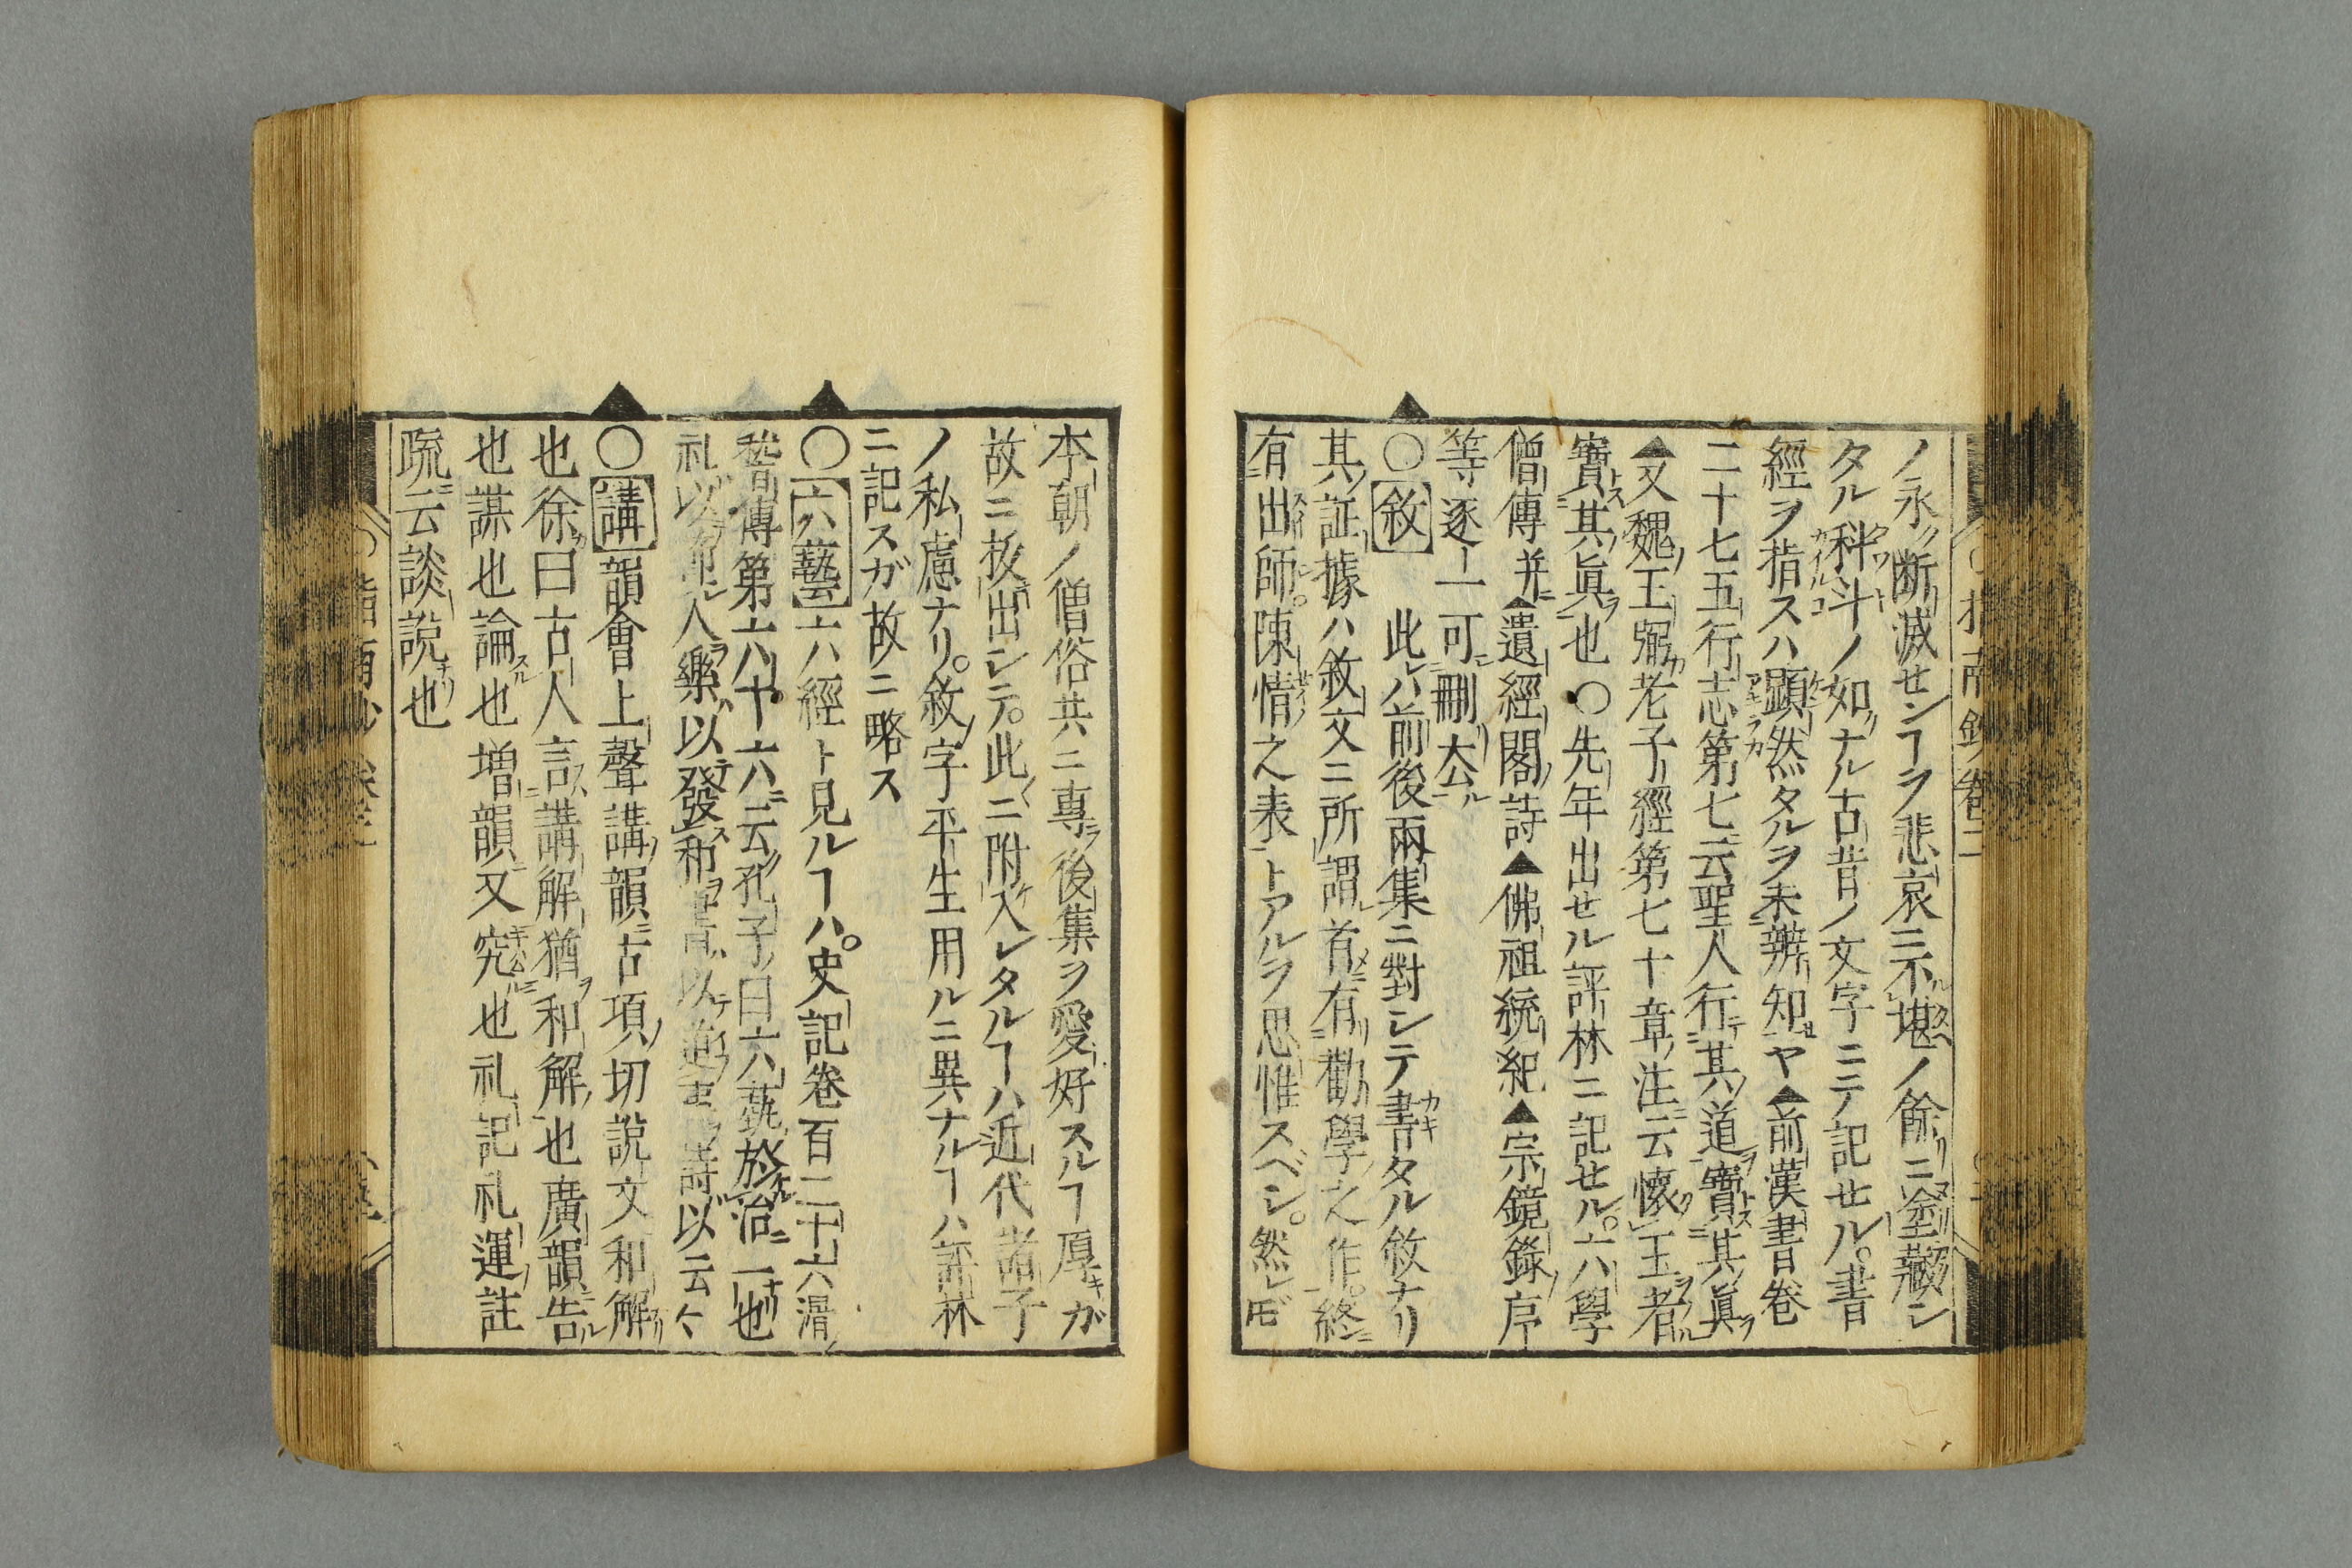 ノ永ク断滅センヿヲ悲哀ニ不堪ノ餘リニ塗藏シ
タル科斗ノ如ナル古昔ノ文字ニテ記セル。書
經ヲ指スハ顕然タルヲ未辨知ヤ▲前漢書巻
二十七五行志第七云聖人行其道寶其眞
▲又魏王弼老子經第七十章注云懐玉者
寶其眞也〇先年出セル評林ニ記セル。六學
僧傳并▲遺經閣詩▲佛祖統紀▲宗鏡錄序
等逐一可刪去
〇敘 此レハ前後兩集ニ對シテ書タル敘ナリ
其証據ハ敘文ニ所謂首有勸學之作。終
有出師。陳情之表トアルヲ思惟スベシ。然レ𪜈
本朝ノ僧俗共ニ專後集ヲ愛好スルヿ厚キガ
故ニ抜出シテ。此ニ附入レタルヿハ近代諸子
ノ私慮ナリ。敘字平生用ルニ異ナルヿハ評林
ニ記スガ故ニ略ス
〇六藝六經ト見ルヿハ。史記巻百二十六滑
稽傳第六十六云孔子曰六藝於治一也
礼以節人樂以發和書以道事詩以云々
〇講韻會上聲講韻古項切説文和解
也徐曰古人言講解猶和解也廣韻告
也謀也論也増韻又究也礼記礼運註
疏云談説也